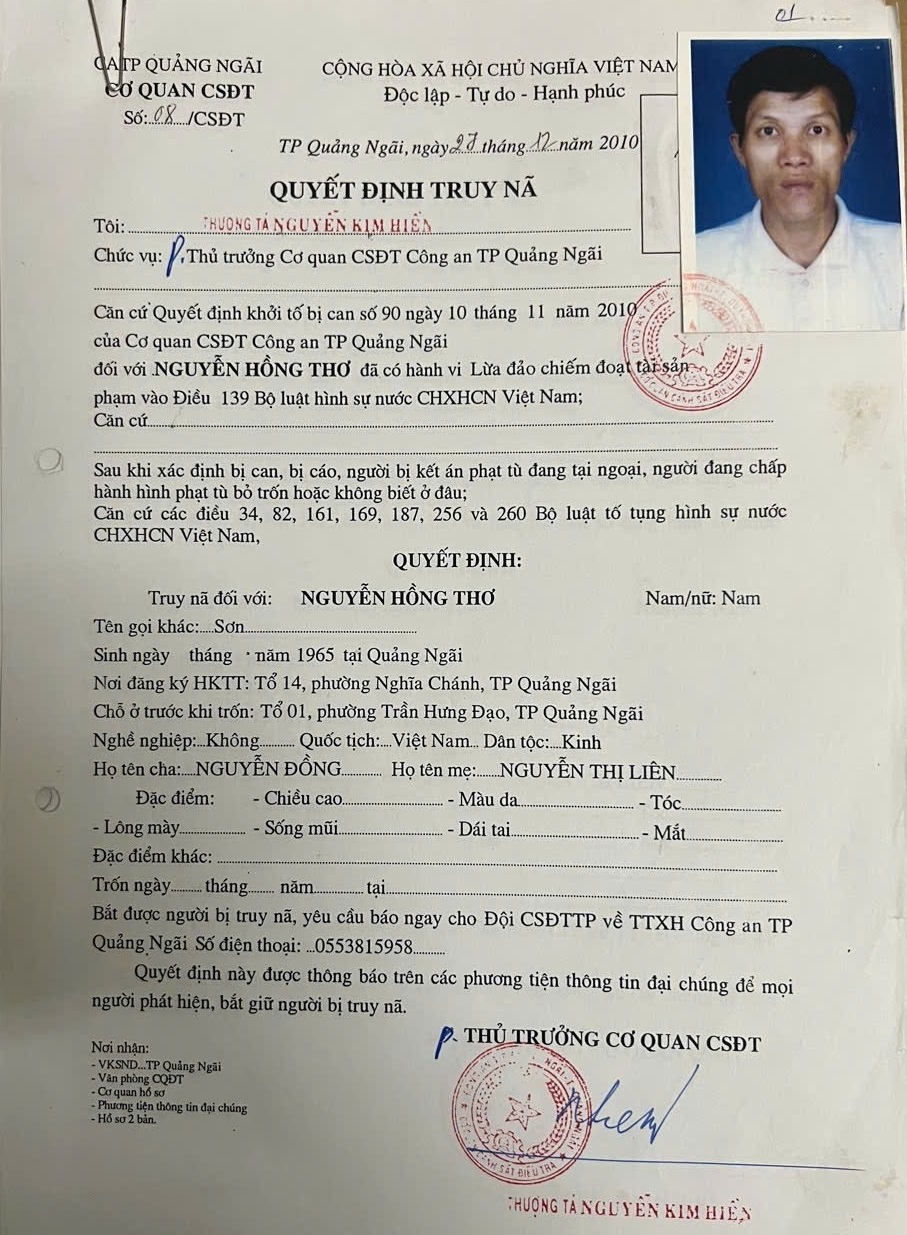 01.....
CATP QUẢNG NGÃI
CƠ QUAN CSĐT
Số:..08.../CSĐT
CỘNG HÒA XÃ HỘI CHỦ NGHĨA VIỆT NAM
Độc lập - Tự do - Hạnh phúc
TP Quảng Ngãi, ngày 27 tháng 12 năm 2010
QUYẾT ĐỊNH TRUY NÃ
Tôi: THƯỢNG TÁ NGUYỄN KIM HIỀN
Chức vụ: P. Thủ trưởng Cơ quan CSĐT Công an TP Quảng Ngãi
Căn cứ Quyết định khởi tố bị can số 90 ngày 10 tháng 11 năm 2010
của Cơ quan CSĐT Công an TP Quảng Ngãi
đối với NGUYỄN HỒNG THƠ đã có hành vi Lừa đảo chiếm đoạt tài sản
phạm vào Điều 139 Bộ luật hình sự nước CHXHCN Việt Nam;
Căn cứ
Sau khi xác định bị can, bị cáo, người bị kết án phạt tù đang tại ngoại, người đang chấp
hành hình phạt tù bỏ trốn hoặc không biết ở đâu;
Căn cứ các điều 34, 82, 161, 169, 187, 256 và 260 Bộ luật tố tụng hình sự nước
CHXHCN Việt Nam,
QUYẾT ĐỊNH:
Truy nã đối với: NGUYỄN HỒNG THƠ Nam/nữ: Nam
Tên gọi khác:....Sơn
Sinh ngày tháng năm 1965 tại Quảng Ngãi
Nơi đăng ký HKTT: Tổ 14, phường Nghĩa Chánh, TP Quảng Ngãi
Chỗ ở trước khi trốn: Tổ 01, phường Trần Hưng Đạo, TP Quảng Ngãi
Nghề nghiệp:...Không.......... Quốc tịch:...Việt Nam... Dân tộc:...Kinh
Họ tên cha:....NGUYỄN ĐỒNG........... Họ tên mẹ:......NGUYỄN THỊ LIÊN
Đặc điểm: - Chiều cao - Màu da - Tóc
- Lông mày - Sống mũi - Dái tai - Mắt
Đặc điểm khác:
Trốn ngày........ tháng....... năm............ tại
Bắt được người bị truy nã, yêu cầu báo ngay cho Đội CSĐTTP về TTXH Công an TP
Quảng Ngãi Số điện thoại: ...0553815958........
Quyết định này được thông báo trên các phương tiện thông tin đại chúng để mọi
người phát hiện, bắt giữ người bị truy nã.
P. THỦ TRƯỞNG CƠ QUAN CSĐT
Nơi nhận:
- VKSND...TP Quảng Ngãi
- Văn phòng CQĐT
- Cơ quan hồ sơ
- Phương tiện thông tin đại chúng
- Hồ sơ 2 bản.
CẢNH SÁT ĐIỀU TRA
THƯỢNG TÁ NGUYỄN KIM HIỀN